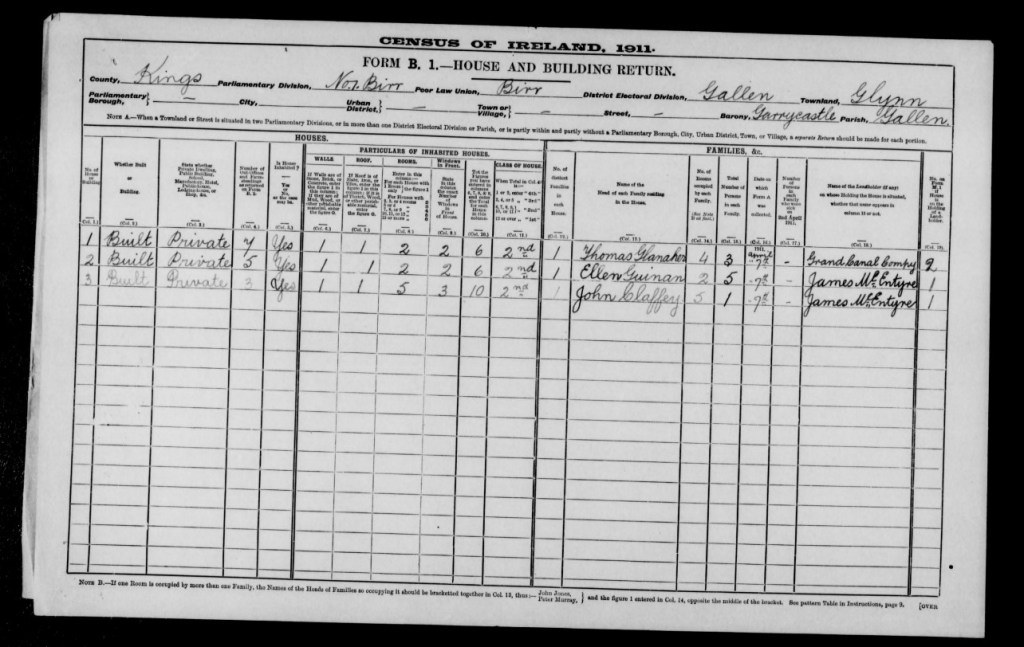 CENSUS OF IRELAND, 1911.
FORM B. 1.—HOUSE AND BUILDING RETURN.
County, Kings Parliamentary Division, No. 1. Birr Poor Law Union, Birr District Electoral Division, Gallen Townland, Glynn
Parliamentary Borough, — City, Urban District, — Town or Village, — Street, — Barony, Garrycastle Parish, Gallen.
NOTE A.—When a Townland or Street is situated in two Parliamentary Divisions, or in more than one District Electoral Division or Parish, or is partly within and partly without a Parliamentary Borough, City, Urban District, Town, or Village, a separate Return should be made for each portion.
HOUSES. FAMILIES, &c.
PARTICULARS OF INHABITED HOUSES.
WALLS. ROOF. ROOMS. Windows in Front. CLASS OF HOUSE.
No. of House or Building
Whether Built or Building.
State whether Private Dwelling, Public Building, School, Manufactory, Hotel, Public-house, Lodging-house, or Shop, &c.
Number of Out-Offices and Farm-steadings as returned on Form B. 2.
Is House Inhabited? Yes or No, as the case may be.
No. of distinct Families in each House.
Name of the Head of each Family residing in the House.
No. of Rooms occupied by each Family.
Total Number of Persons in each Family.
Date on which Form A was collected.
Name of the Landholder (if any) on whose Holding the House is situated, whether that name appears in column 13 or not.
(Col. 1.) (Col. 2.) (Col. 3.) (Col. 4.) (Col. 5.) (Col. 6.) (Col. 7.) (Col. 8.) (Col. 9.) (Col. 10.) (Col. 11.) (Col. 12.) (Col. 13.) (Col. 14.) (Col. 15.) (Col. 16.) (Col. 17.) (Col. 18.) (Col. 19.)
1911. April
1 Built Private 7 Yes 1 1 2 2 6 2nd 1 Thomas 4 3 7th - Grand Canal Compy 2
2 Built Private 5 Yes 1 1 2 2 6 2nd 1 Ellen Guinan 2 5 " 7th - James McEntyre 1
3 Built Private 3 Yes 1 1 5 3 10 2nd 1 John Claffey 5 1 " 7th - James McEntyre 1
NOTE B.—If one Room is occupied by more than one Family, the Names of the Heads of Families so occupying it should be bracketted together in Col. 13, thus:— John Jones, Peter Murray, } and the figure 1 entered in Col. 14, opposite the middle of the bracket. See pattern Table in Instructions, page 9. [OVER